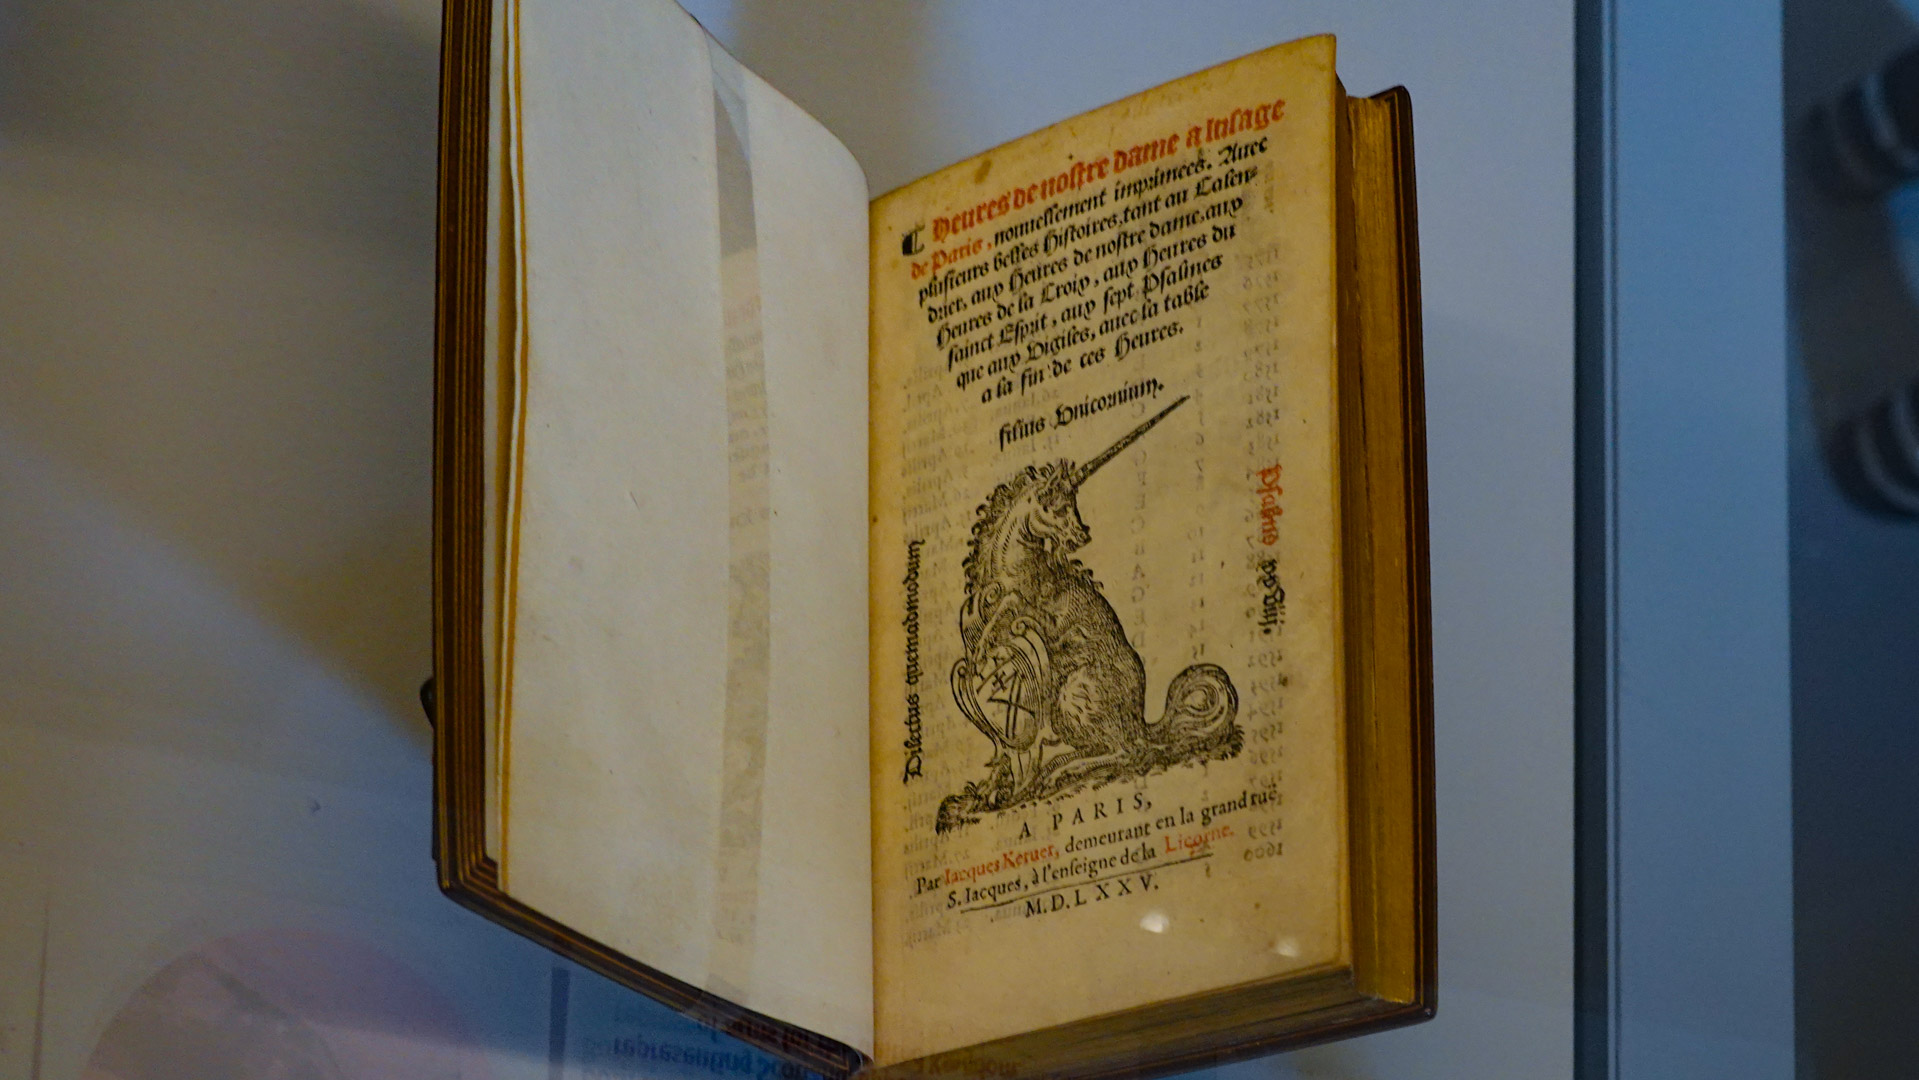 Heures de nostre dame a lusage
de Paris, nouuellement imprimees. Auec
plusieurs belles Histoires, tant au Calen-
drier, aux Heures de nostre dame, aux
Heures de la Croix, aux Heures du
sainct Esprit, aux sept Psalmes
que aux Vigiles, auec la table
a la fin de ces Heures.
filius Vnicornium.
Dilectus quemadmodum
Psalmo
A PARIS,
Par Iacques Keruer, demeurant en la grand rue
S. Iacques, à l'enseigne de la Licorne.
M.D.LXXV.